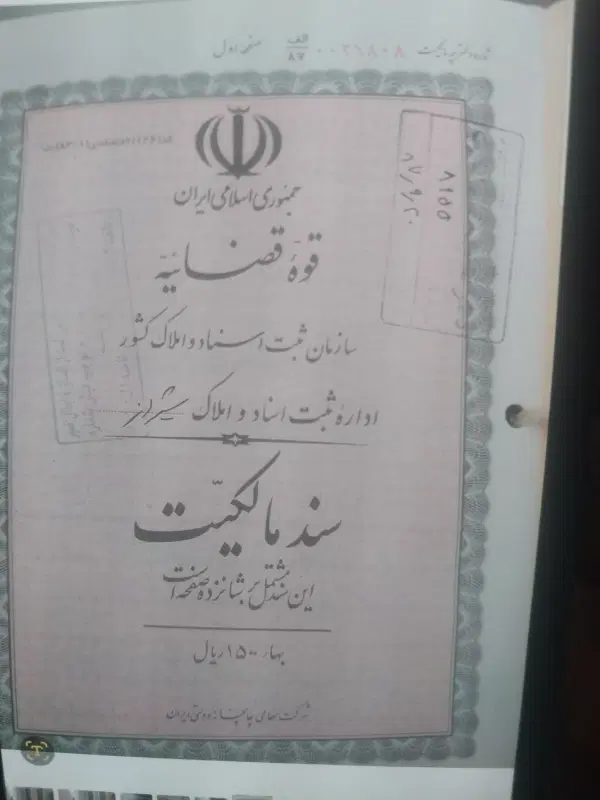 شماره دفترچه مالکیت ۰۰۳۱۸۰۸ الف ۸۷ صفحه اول
جمهوری اسلامی ایران
قوه قضائیه
۸۱۵۵
۸۷/۹/۲۰
سازمان ثبت اسناد و املاک کشور
اداره ثبت اسناد و املاک شیراز
سند مالکیت
این سند مشتمل بر شانزده صفحه است
بهاء ۱۵۰۰ ریال
شرکت سهامی چاپخانه دولتی ایران